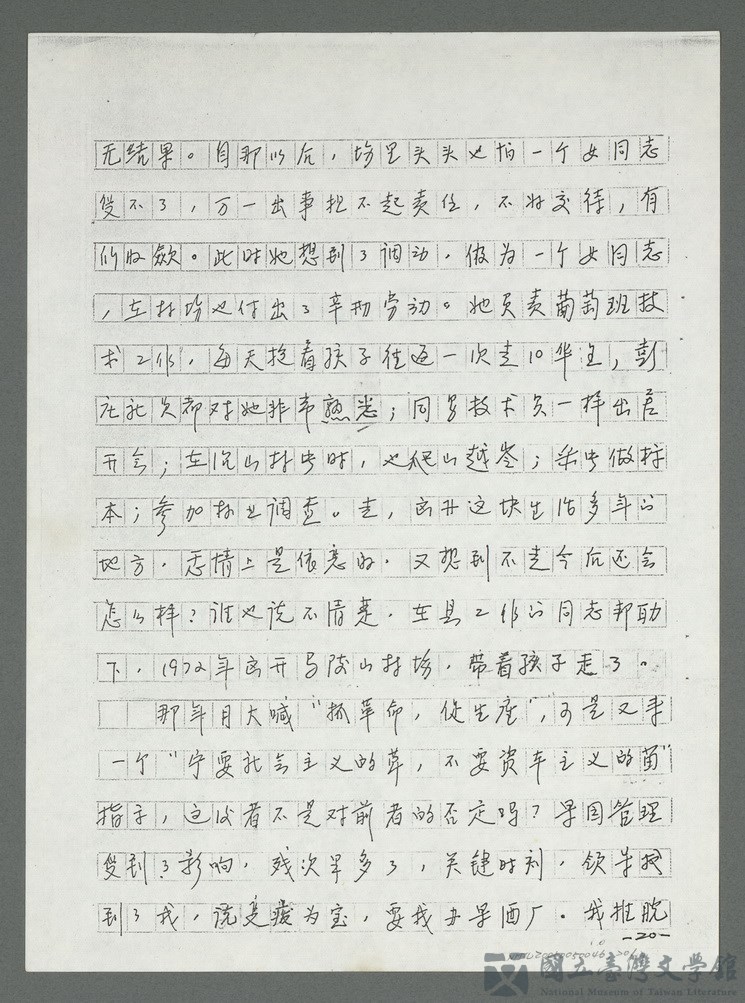 无结果。自那以后，场里头头也怕一个女同志
受不了，万一出事担不起责任，不好交待，有
所收敛。此时她想到了调动。做为一个女同志
，在林场也付出了辛勤劳动。她负责葡萄班技
术工作，每天抱着孩子往返一次走10华里，彭
庄社员都对她非常熟悉；同男技术员一样出差
开会；在沉山林虫时，也爬山越岺；采虫做标
本；参加林业调查。走，离开这块生活多年的
地方，感情上是依恋的，又想到不走今后还会
怎么样？谁也说不清楚，在县工作的同志帮助
下，1972年离开马陵山林场，带着孩子走了。
那年月大喊“抓革命，促生产”，可是又来
一个“宁要社会主义的草，不要资本主义的苗”
指示，这后者不是对前者的否定吗？果园管理
受到了影响，残次果多了，关键时刻，领导找
到了我，说变废为宝，要我办果酒厂。我推脱
-20-
國立臺灣文學館
National Museum of Taiwan Literature